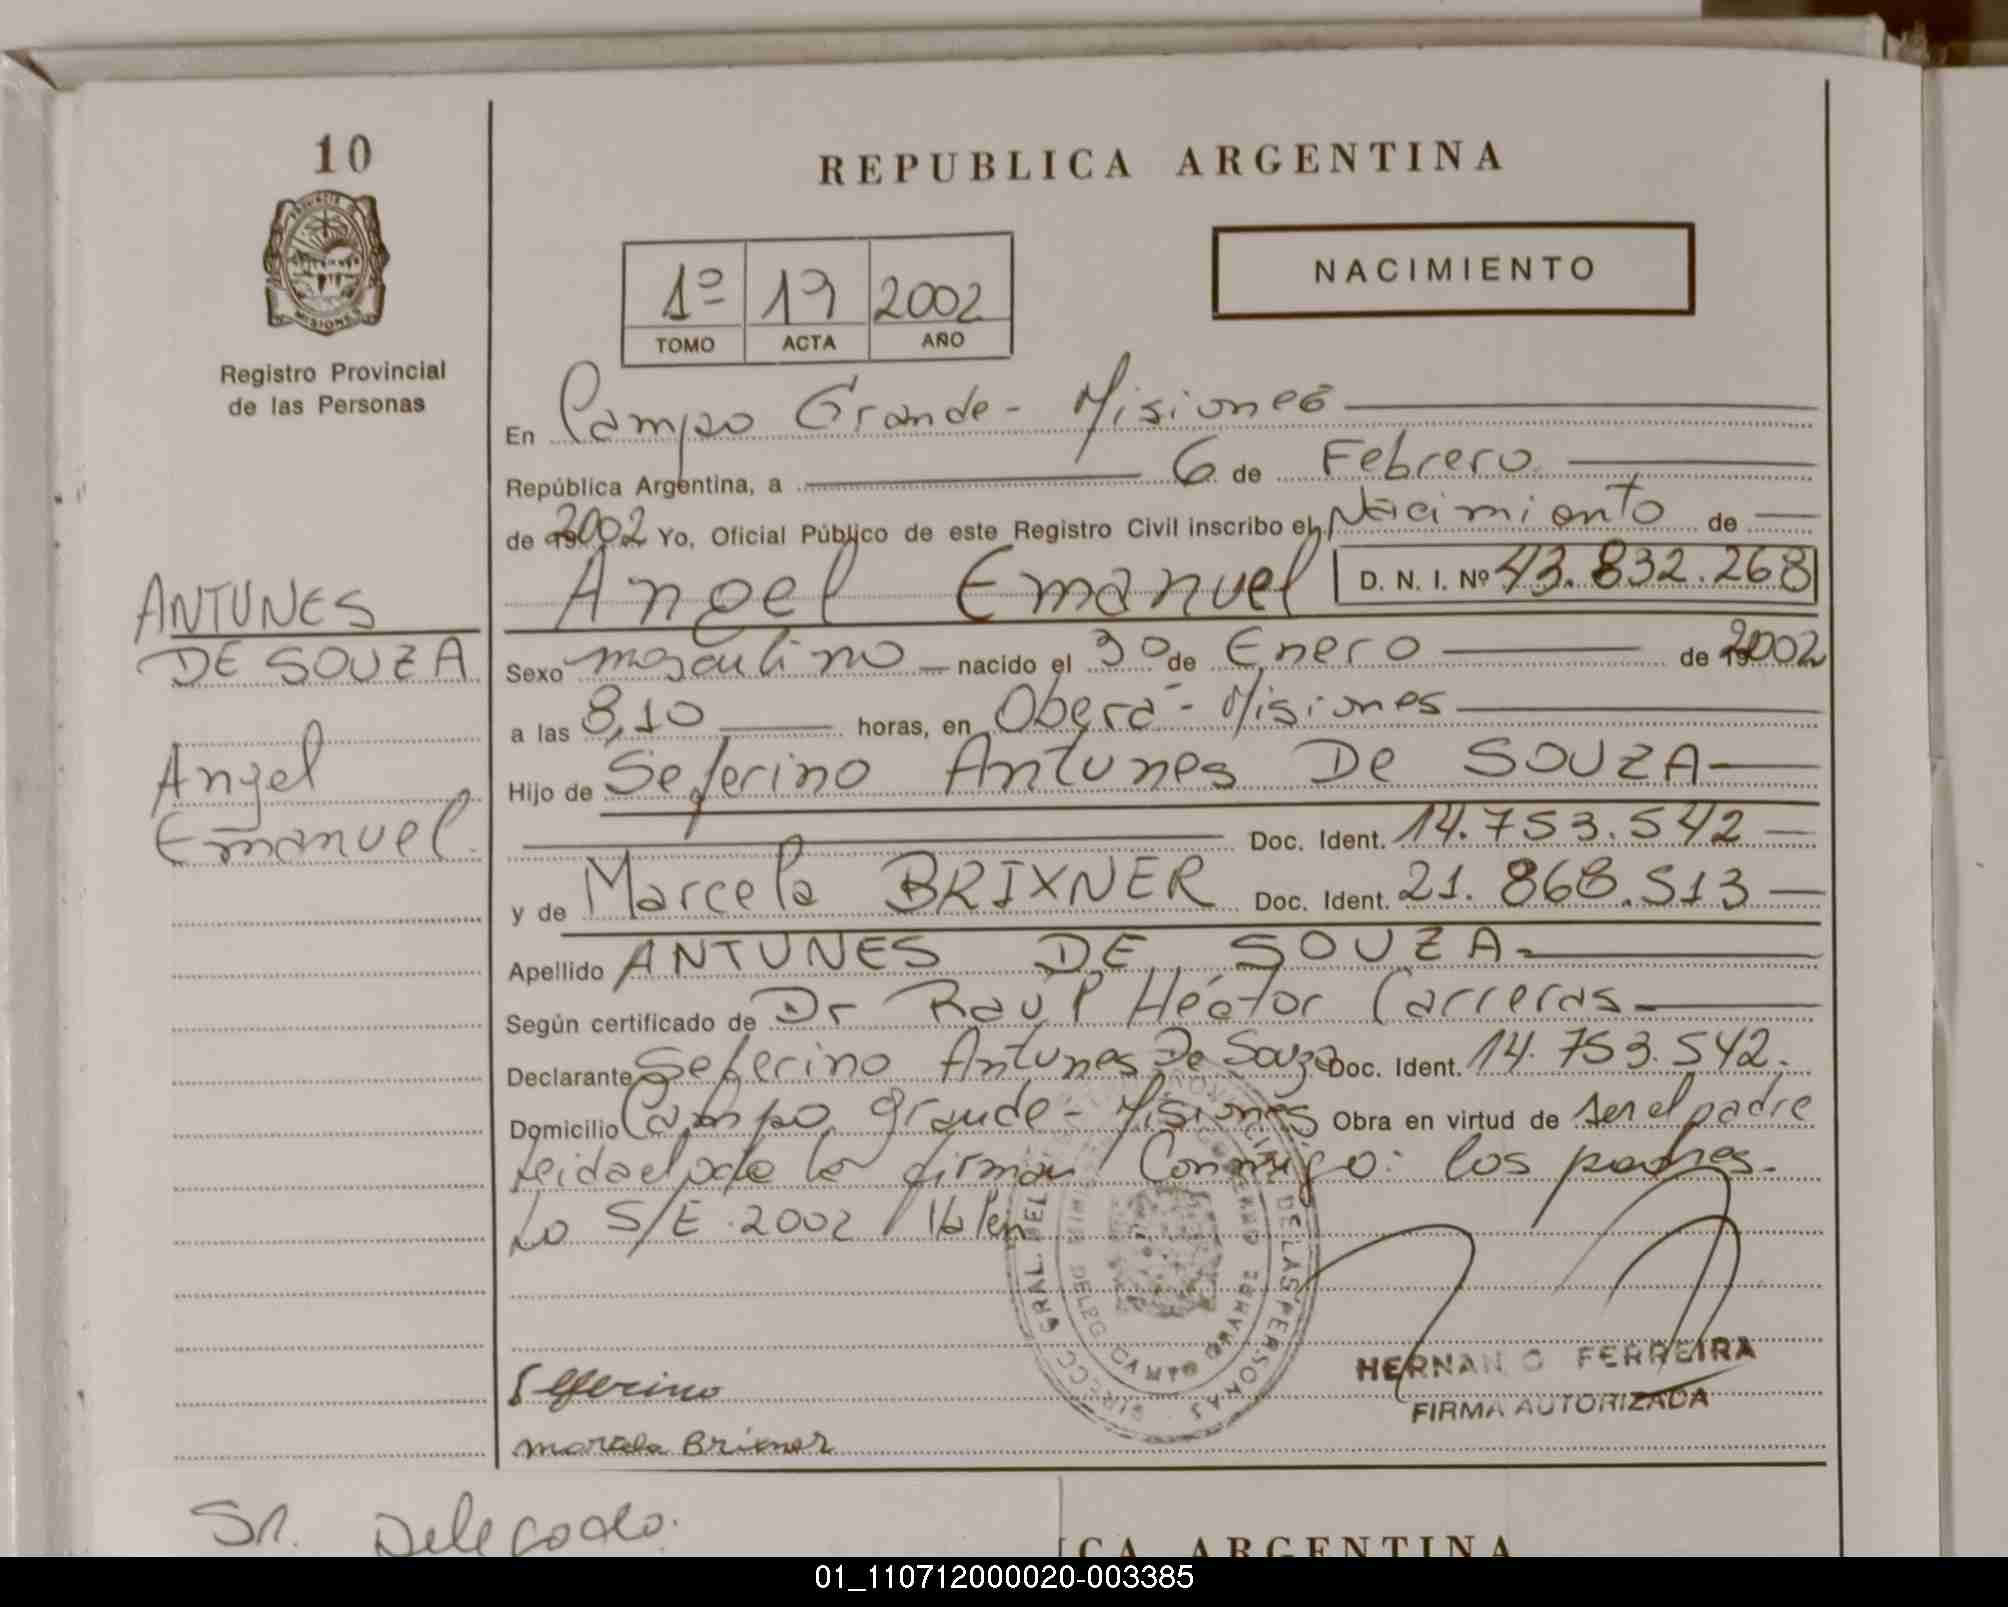 10
REPUBLICA ARGENTINA
NACIMIENTO
1º 19 2002
TOMO ACTA AÑO
MISIONES
Registro Provincial
de las Personas
En Campo Grande - Misiones
República Argentina, a 6 de Febrero
de 2002 Yo, Oficial Público de este Registro Civil inscribo el Nacimiento de
Angel Emanuel D. N. I. Nº 43.832.268
ANTUNES
DE SOUZA
Angel
Emanuel
Sexo masculino nacido el 30 de Enero de 2002
a las 8,10 horas, en Oberá - Misiones
Hijo de Seferino Antunes De SOUZA
Doc. Ident. 14.753.542
y de Marcela BRIXNER Doc. Ident. 21.868.513
Apellido ANTUNES DE SOUZA
Según certificado de Dr Raul Héctor Carreras
Declarante Seferino Antunes De Souza Doc. Ident. 14.753.542.
Domicilio Campo grande - Misiones Obra en virtud de ser el padre
leida el acta la firman Conmigo: los padres.
Lo S/E 2002 Valen
DIRECC. GRAL. DEL DE LAS PERSONAS
DELEG. CAMPO GRANDE
Seferino
Marcela Brixner
HERNAN FERREIRA
FIRMA AUTORIZADA
Sr. Delegado.
CA ARGENTINA
01_110712000020-003385